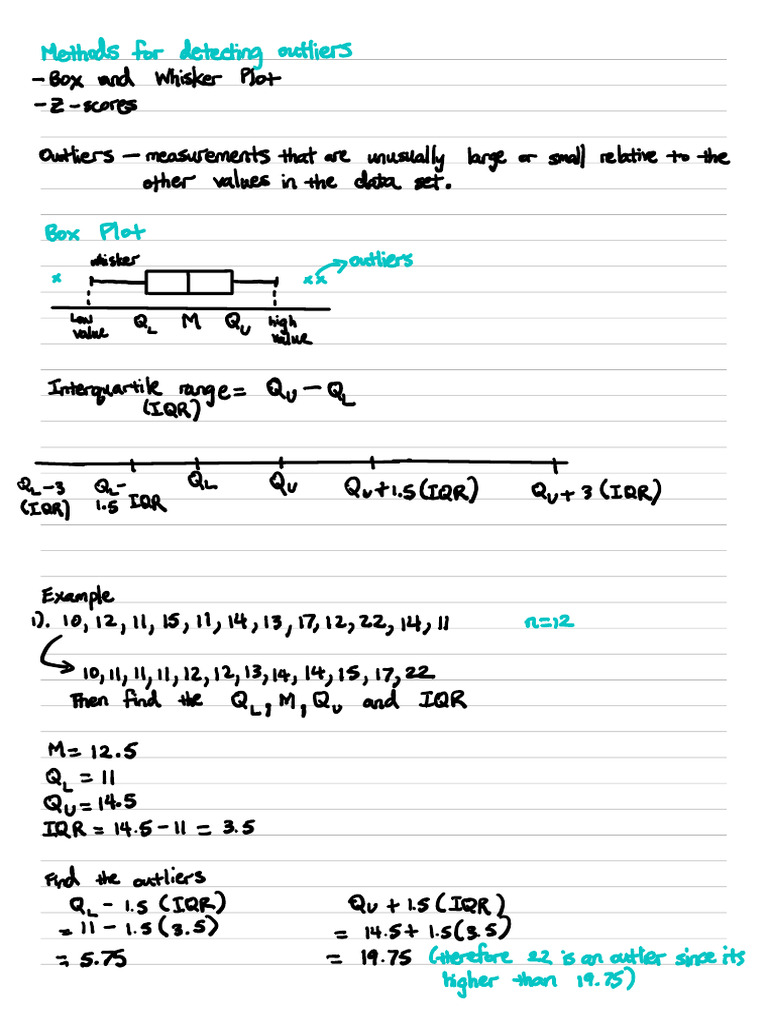 Methods for detecting outliers
- Box and Whisker Plot
- Z-scores
Outliers - measurements that are unusually large or small relative to the
other values in the data set.
Box Plot
whisker
x xx → outliers
low value Q_L M Q_U high value
Interquartile range = Q_U - Q_L
(IQR)
Q_L-3 (IQR) Q_L- 1.5 IQR Q_L Q_U Q_U+1.5(IQR) Q_U+3(IQR)
Example
1). 10, 12, 11, 15, 11, 14, 13, 17, 12, 22, 14, 11 n=12
10, 11, 11, 11, 12, 12, 13, 14, 14, 15, 17, 22
Then find the Q_L, M, Q_U and IQR
M = 12.5
Q_L = 11
Q_U = 14.5
IQR = 14.5 - 11 = 3.5
Find the outliers
Q_L - 1.5 (IQR) Q_U + 1.5 (IQR)
= 11 - 1.5 (3.5) = 14.5 + 1.5(3.5)
= 5.75 = 19.75 (therefore 22 is an outlier since its
higher than 19.75)